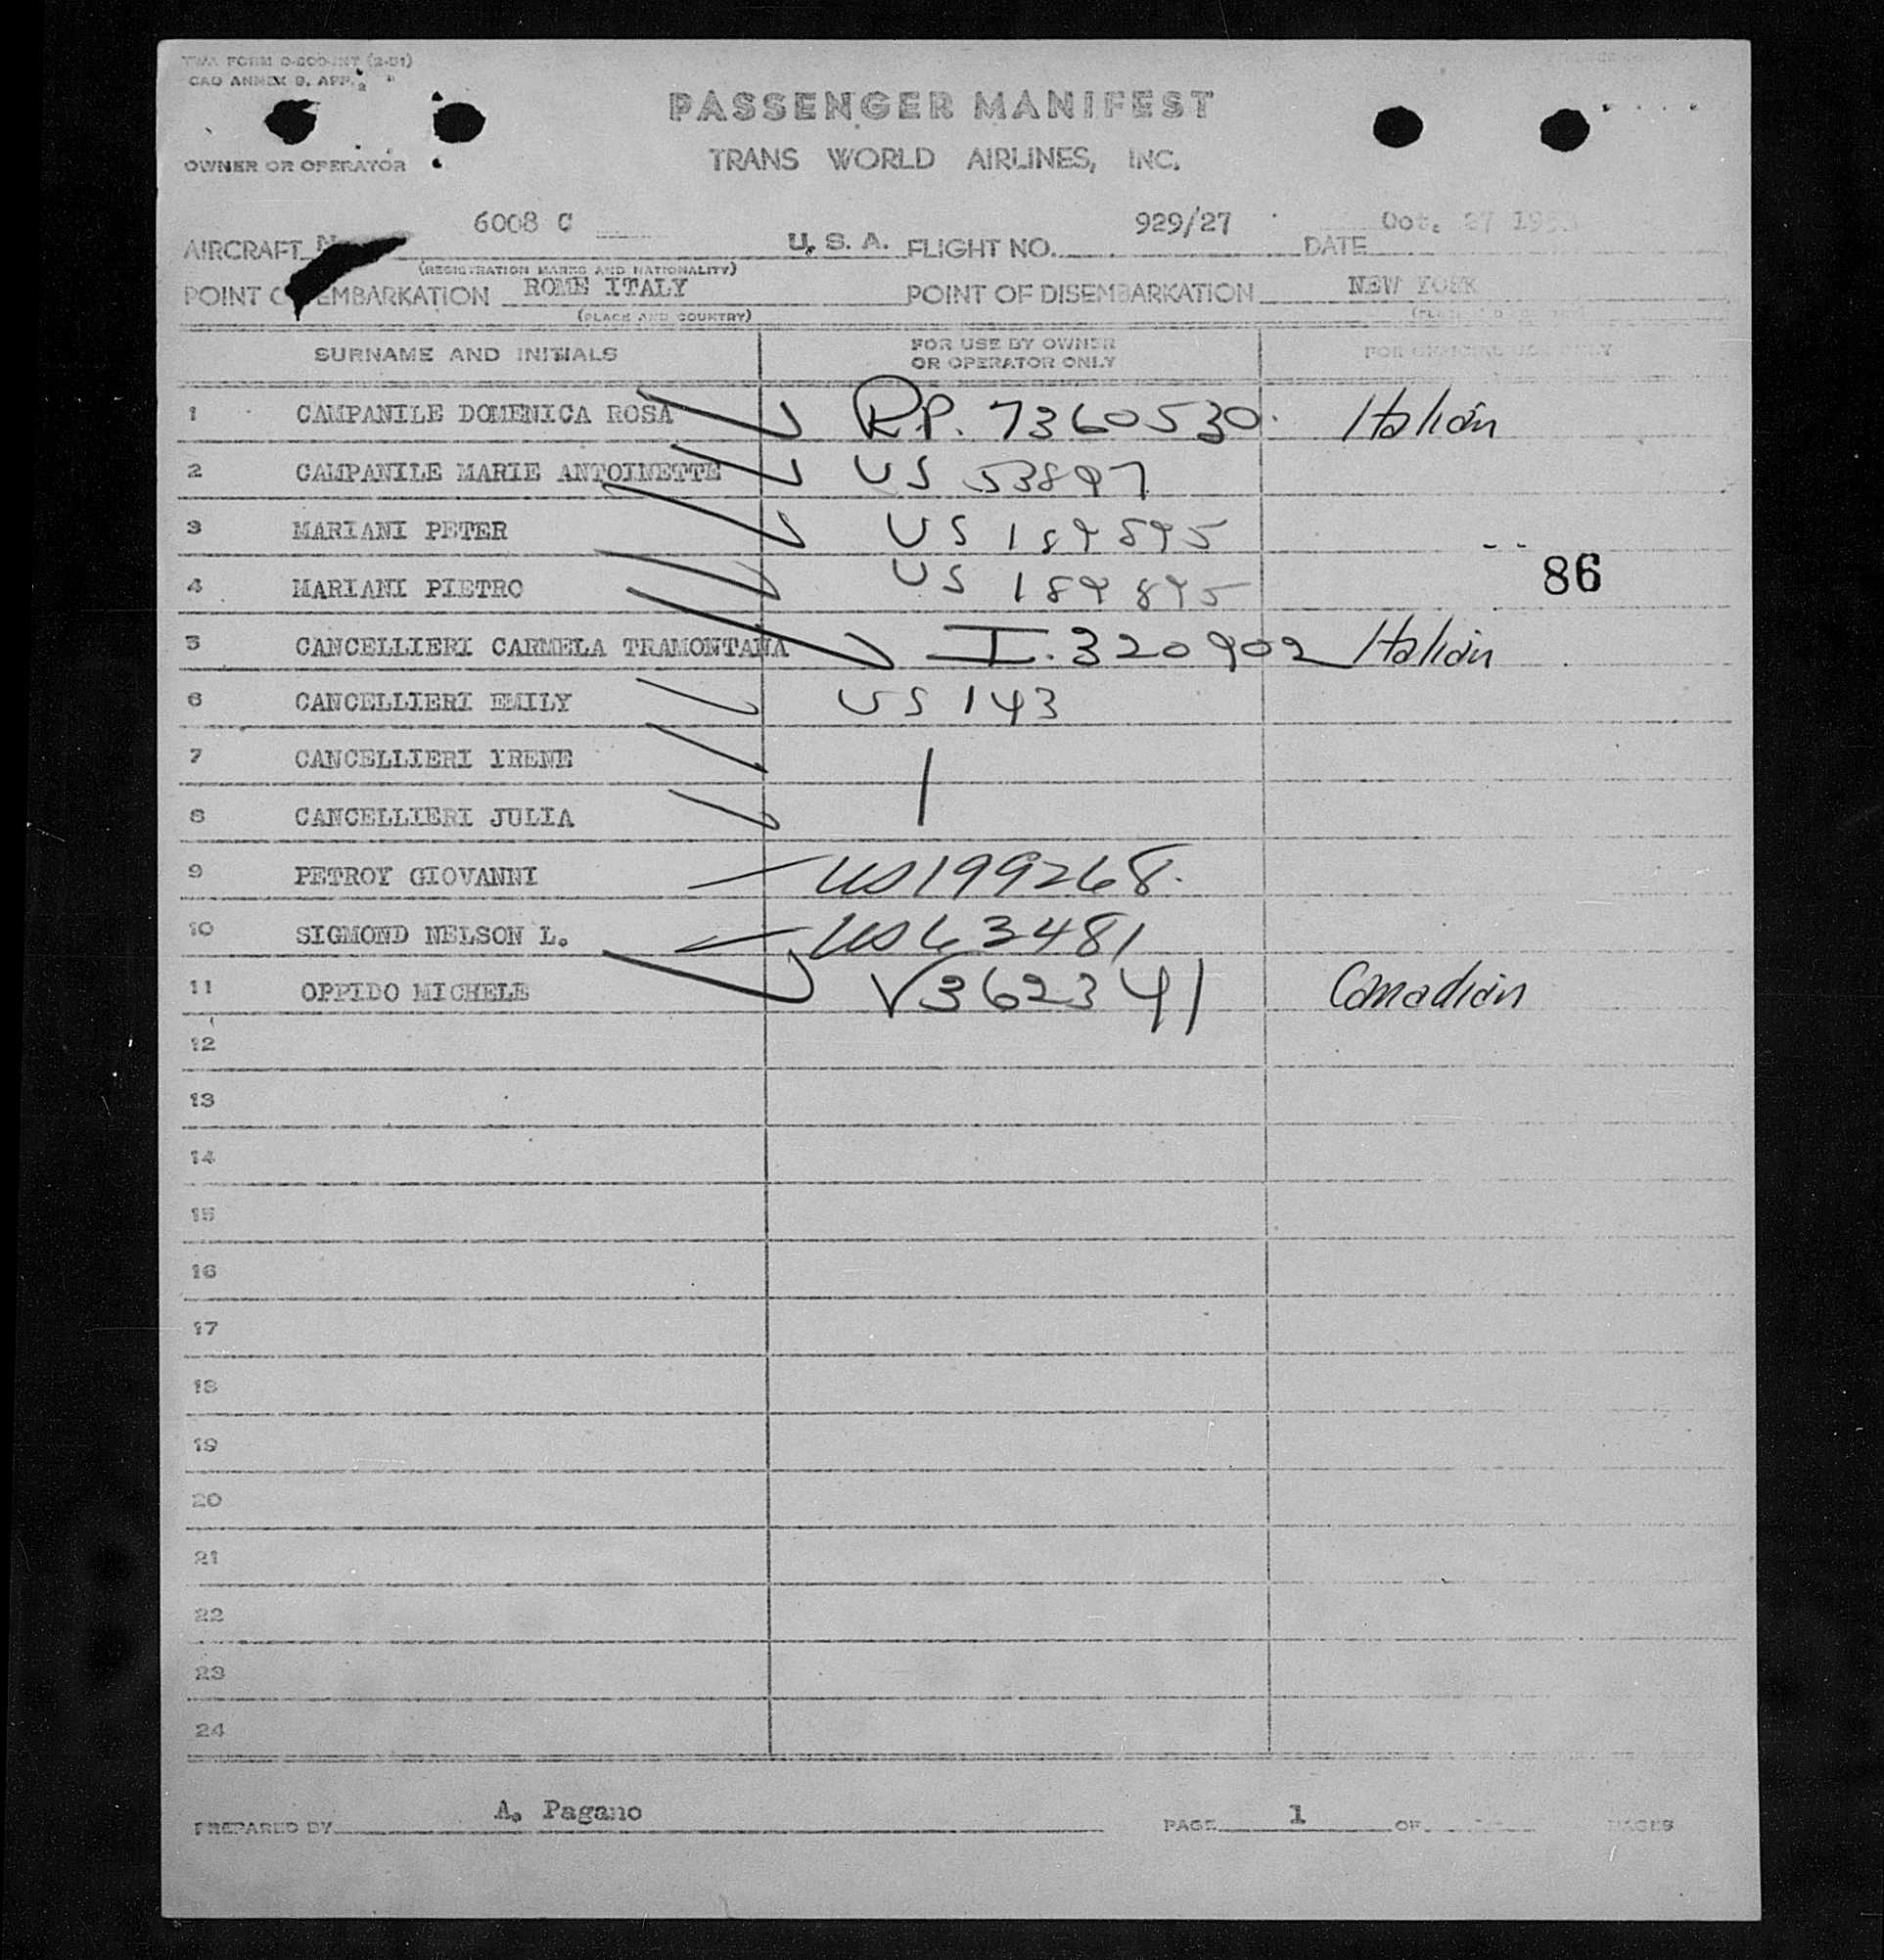 TWA FORM O-200-INT (2-51)
CAO ANNEX 9. APP. 2
PASSENGER MANIFEST
OWNER OR OPERATOR
TRANS WORLD AIRLINES, INC.
AIRCRAFT N 6008 C U. S. A. FLIGHT NO. 929/27 DATE Oct. 27
(REGISTRATION MARKS AND NATIONALITY)
POINT EMBARKATION ROME ITALY POINT OF DISEMBARKATION NEW YORK
(PLACE AND COUNTRY)
SURNAME AND INITIALS FOR USE BY OWNER OR OPERATOR ONLY FOR OFFICIAL USE ONLY
1 CAMPANILE DOMENICA ROSA R.P. 7360530. Italian
2 CAMPANILE MARIE ANTOINETTE US 53897
3 MARIANI PETER US 189895
86
4 MARIANI PIETRO US 189895
5 CANCELLIERI CARMELA TRAMONTANA I. 320902 Italian
6 CANCELLIERI EMILY US 143
7 CANCELLIERI YRENE
8 CANCELLIERI JULIA
9 PETROY GIOVANNI US199268.
10 SIGMOND NELSON L. US63481
11 OPPIDO MICHELE V362341 Canadian
12
13
14
15
16
17
18
19
20
21
22
23
24
PREPARED BY A. Pagano PAGE 1 OF PAGES